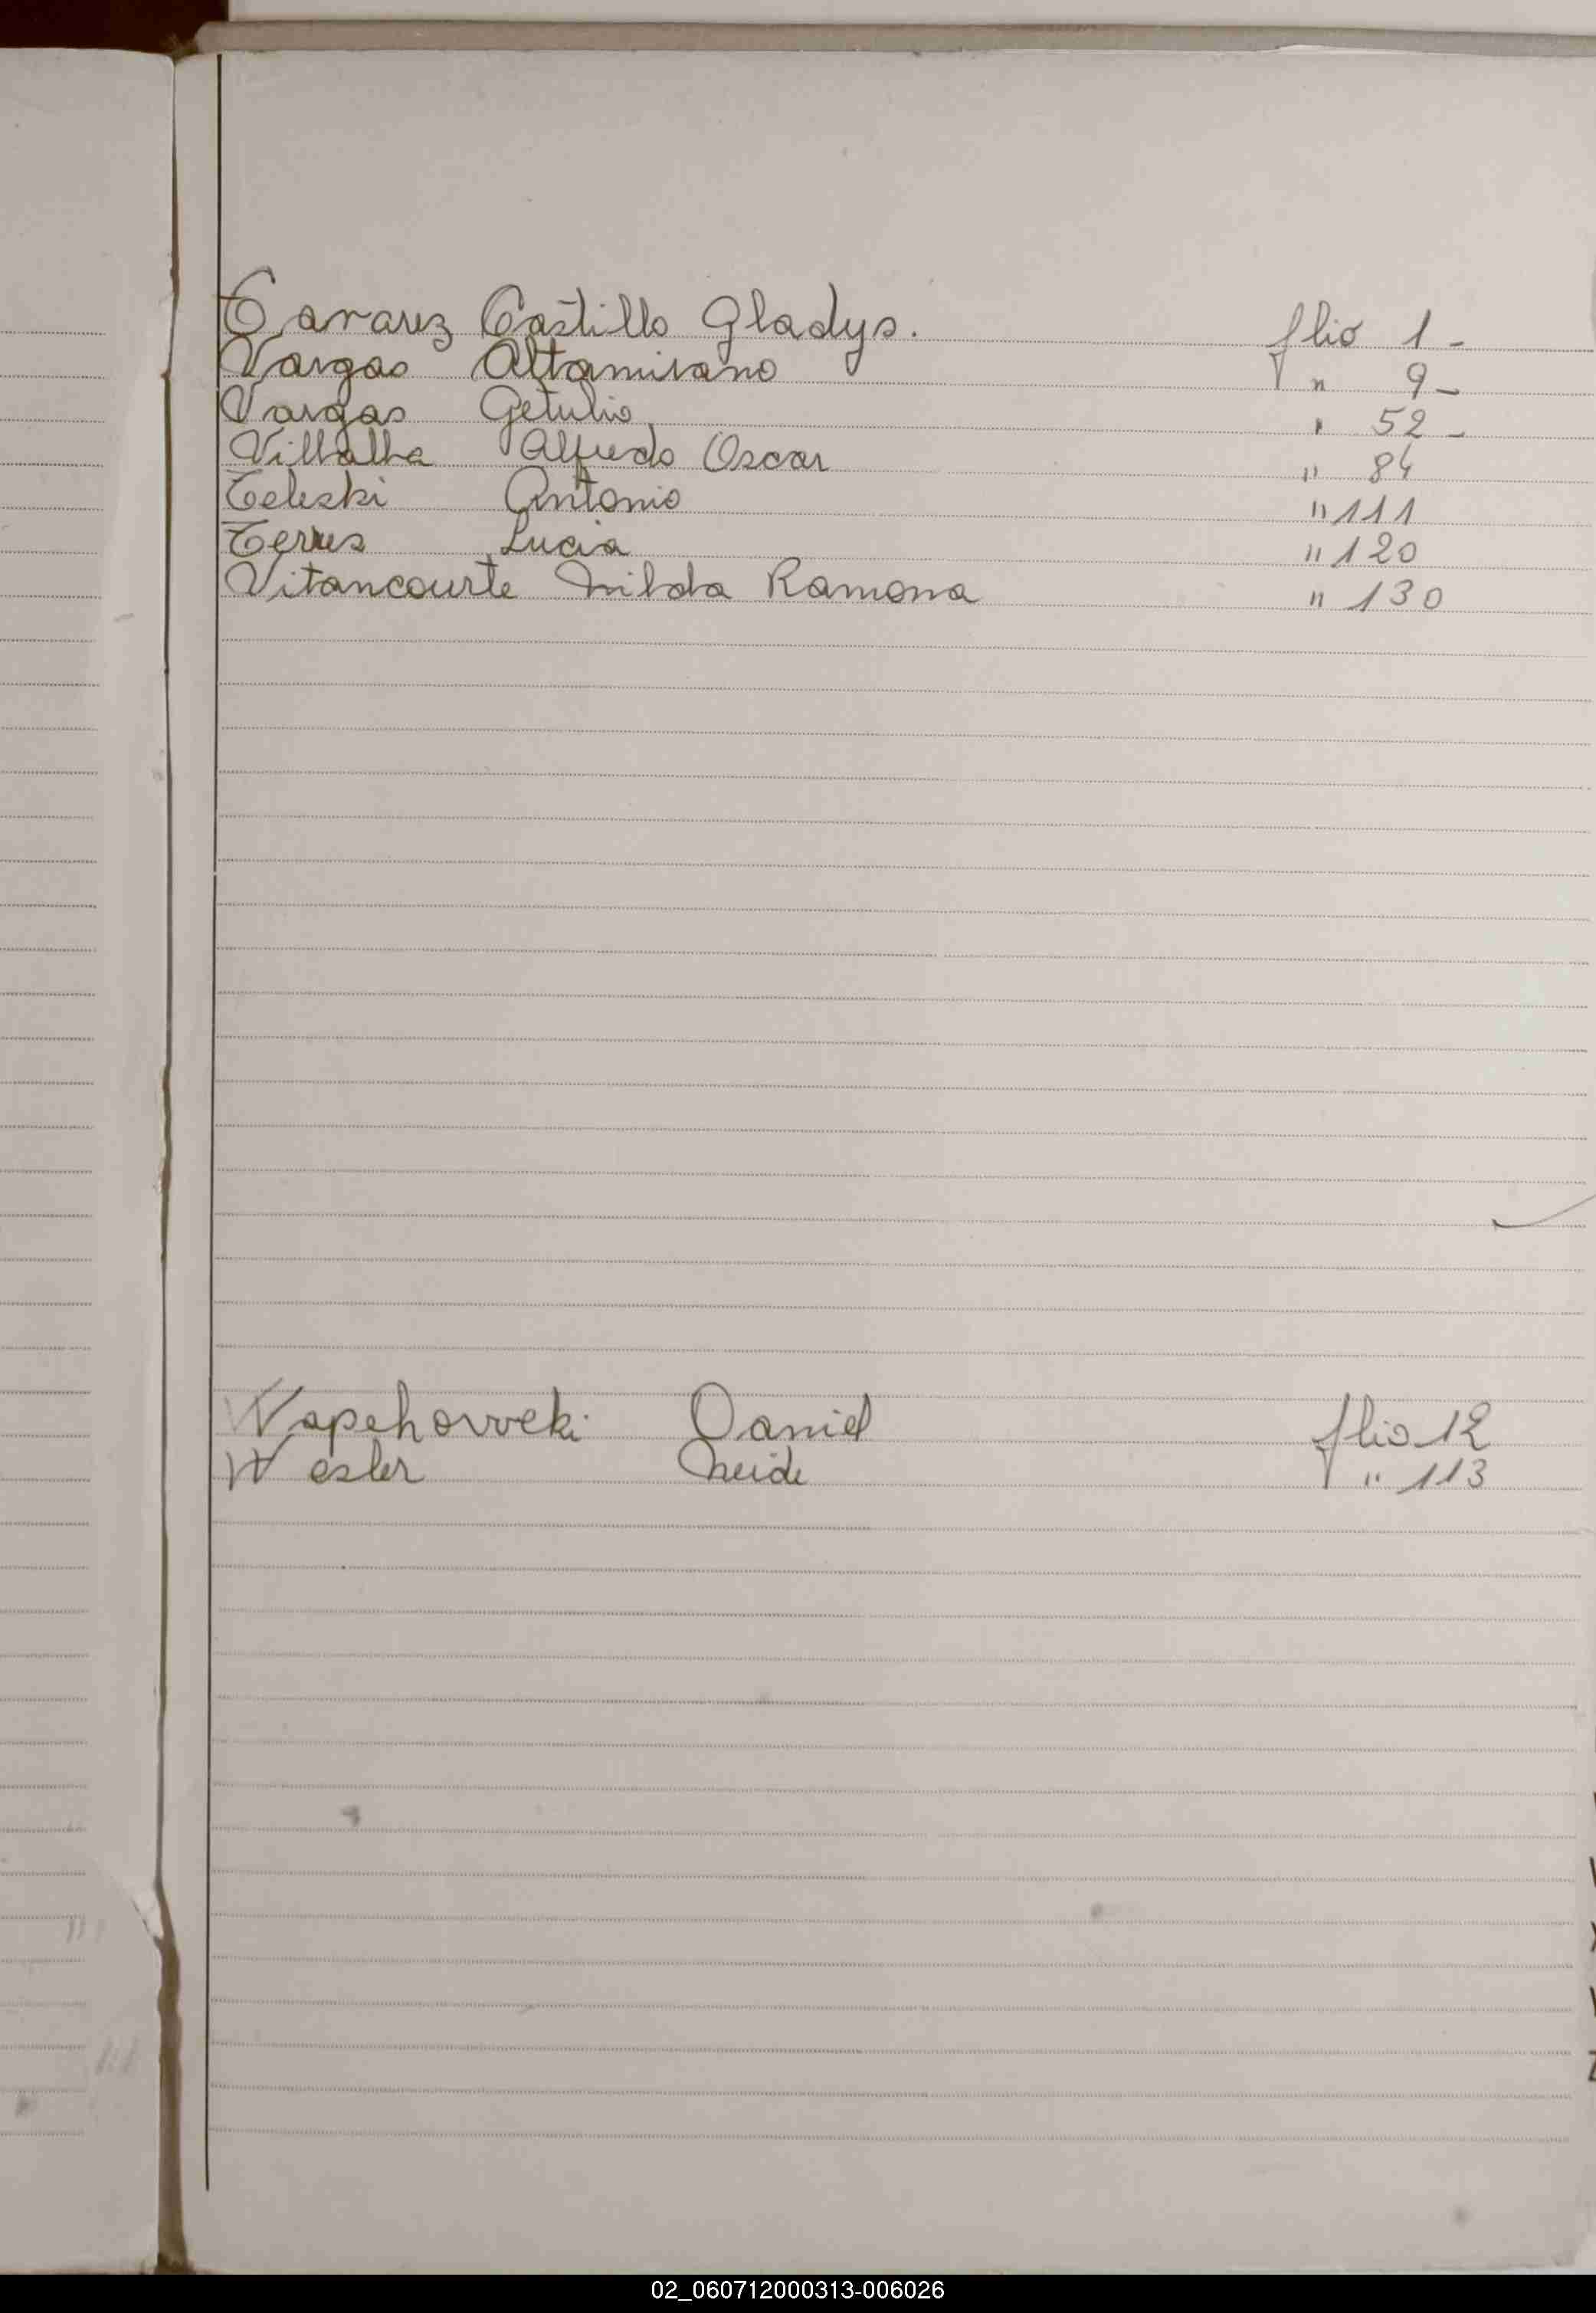 Tavarez Castillo Gladys. flio 1 -
Vargas Altamirano " 9 -
Vargas Getulio " 52 -
Villalba Alfredo Oscar " 84
Teleski Antonio " 111
Terres Lucia " 120
Vitancourte Nilda Ramona " 130
Daniel flio 12
Wesler Neide " 113
02_060712000313-006026